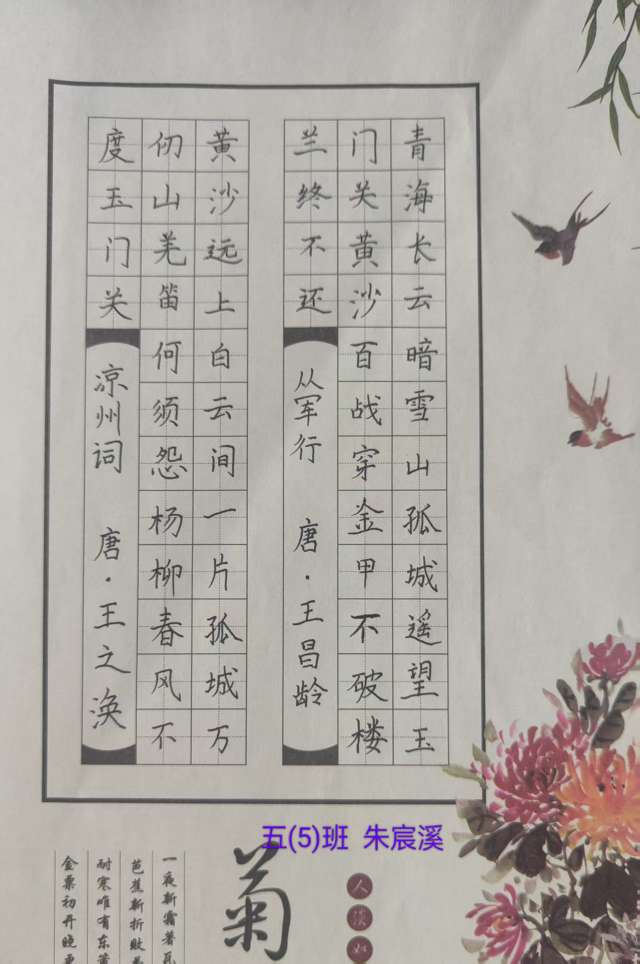 青海长云暗雪山孤城遥望玉
门关黄沙百战穿金甲不破楼
兰终不还
从军行 唐·王昌龄
黄沙远上白云间一片孤城万
仞山羌笛何须怨杨柳春风不
度玉门关
凉州词 唐·王之涣
五(5)班 朱宸溪
人淡如
菊
一夜新霜著瓦
芭蕉新折败
耐寒唯有东
金粟初开晓更